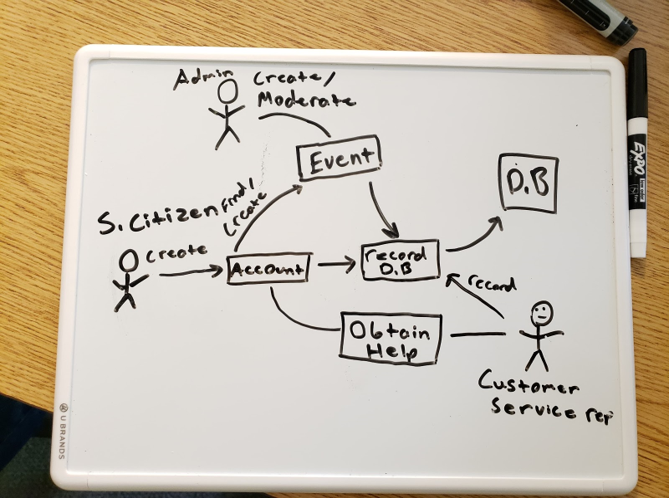 Admin
Create/
Moderate
Event
D.B
S. Citizen
Find/
Create
create
Account
record
D.B
record
Obtain
Help
Customer
Service rep
U BRANDS
EXPO